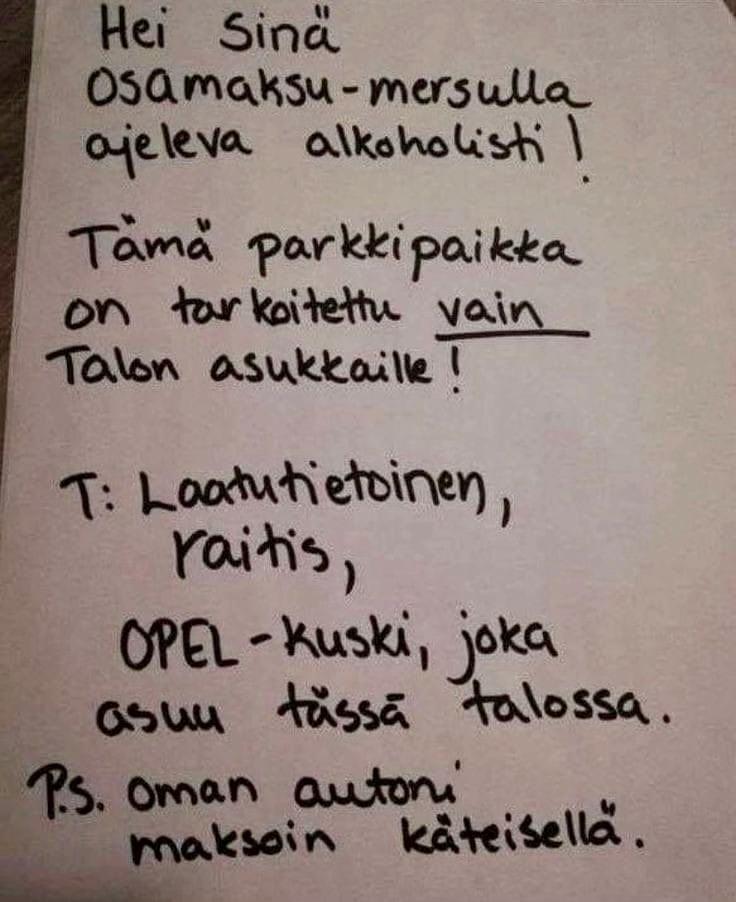 Hei Sinä
osamaksu-mersulla
ajeleva alkoholisti!
Tämä parkkipaikka
on tarkoitettu vain
Talon asukkaille!
T: Laatutietoinen,
raitis,
OPEL-kuski, joka
asuu tässä talossa.
P.S. oman autoni
maksoin käteisellä.